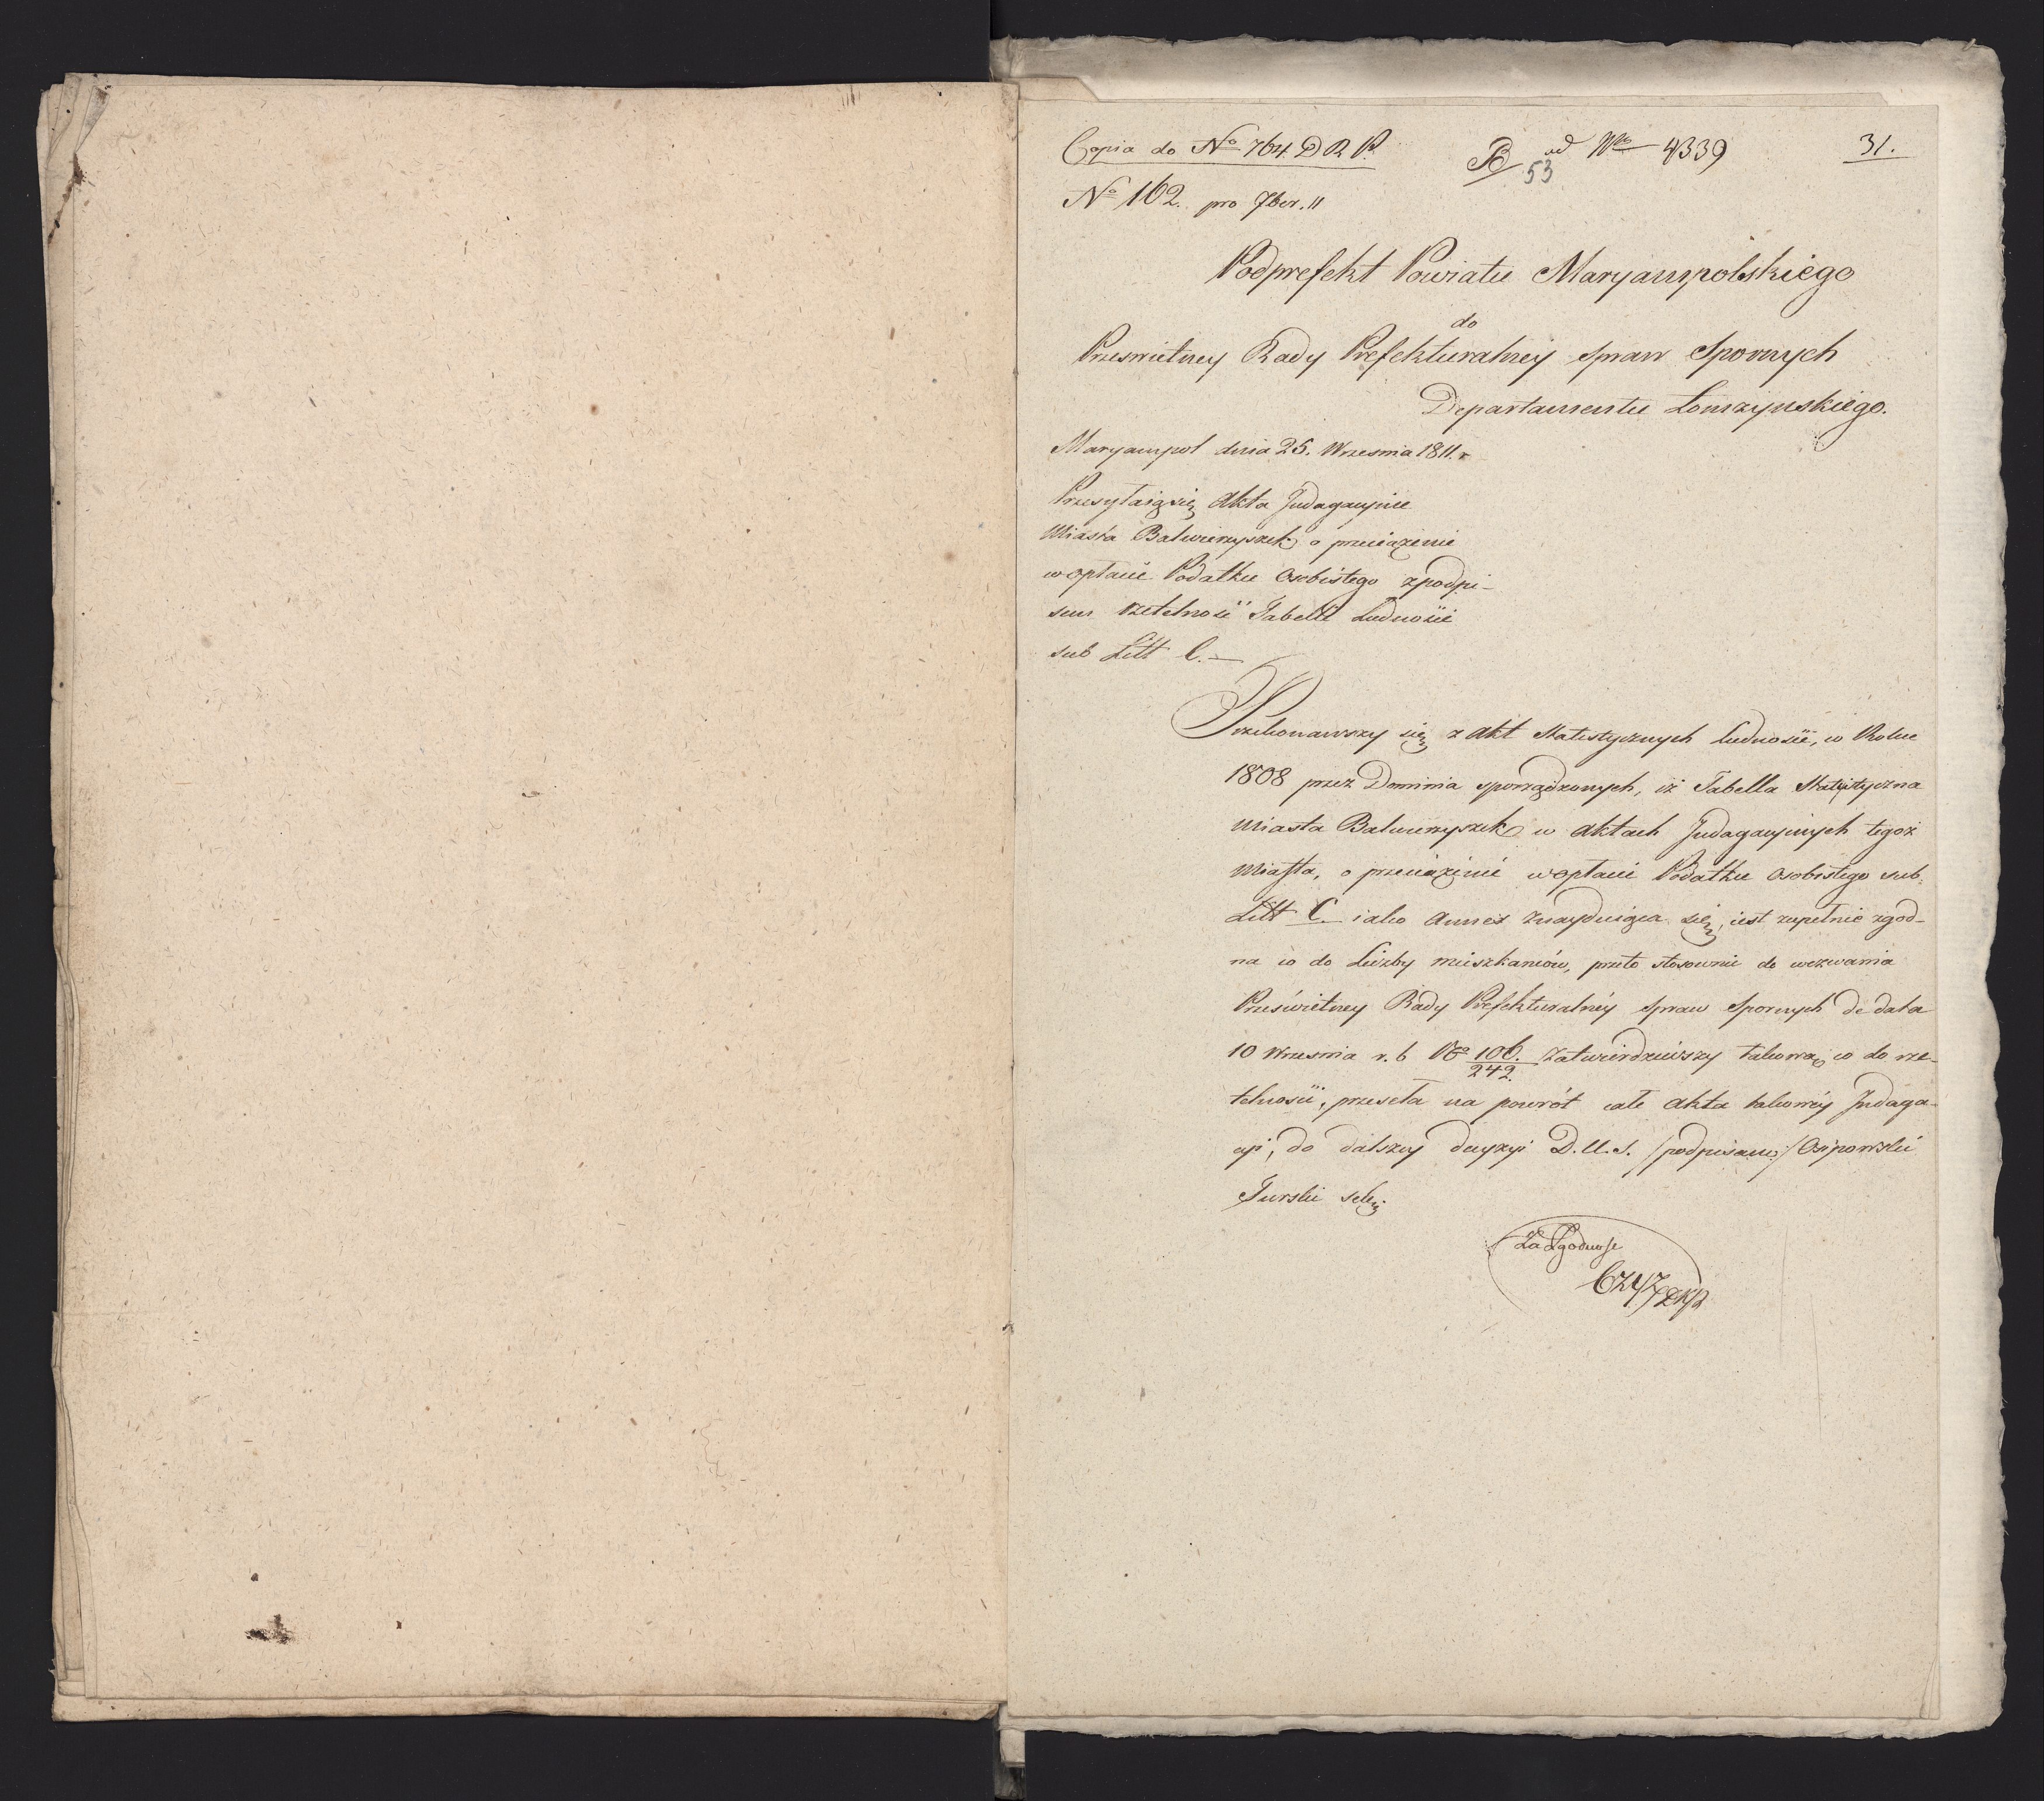 Copia do No 764 D R P.
B ad Nro 4339
53
31.
No 162. pro 7ber. 11
Podprefekt Powiatu Maryampolskiego
do
Prześwietney Rady Prefekturalnéy Spraw Spornych
Departamentu Łomżyńskiego.
Maryampol dnia 25. Wrzesnia 1811. r
Przesyłaią się Akta Indagacyine
Miasta Balwierzyszek o przeciążenie
w opłacie Podatku Osobistego z podpi-
sem rzetelność Tabelli Ludności
sub Litt C. —
Przekonawszy się z Akt Statystycznych ludności, w Roku
1808 przez Dominia sporządzonych, iż Tabella Statystyczna
Miasta Balwierzyszek w Aktach Indagacyinych tegoż
Miasta, o przeciążenie w opłacie Podatku Osobistego sub
Litt C. iako Annex znayduiąca się, iest zupełnie zgod-
na co do Liczby mieszkańców, przeto stosownie do wezwania
Prześwietney Rady Prefekturalnéy Spraw Spornych de dato
10 Wrzesnia r. b No 106./242. zatwierdziwszy takową co do rze-
telności, przeseła na powrót całe Akta takowéy Indaga-
cyi, do dalszey decyzyi D. U. S. /podpisano/ Osipowski
Turski sekr.
Za Zgodność